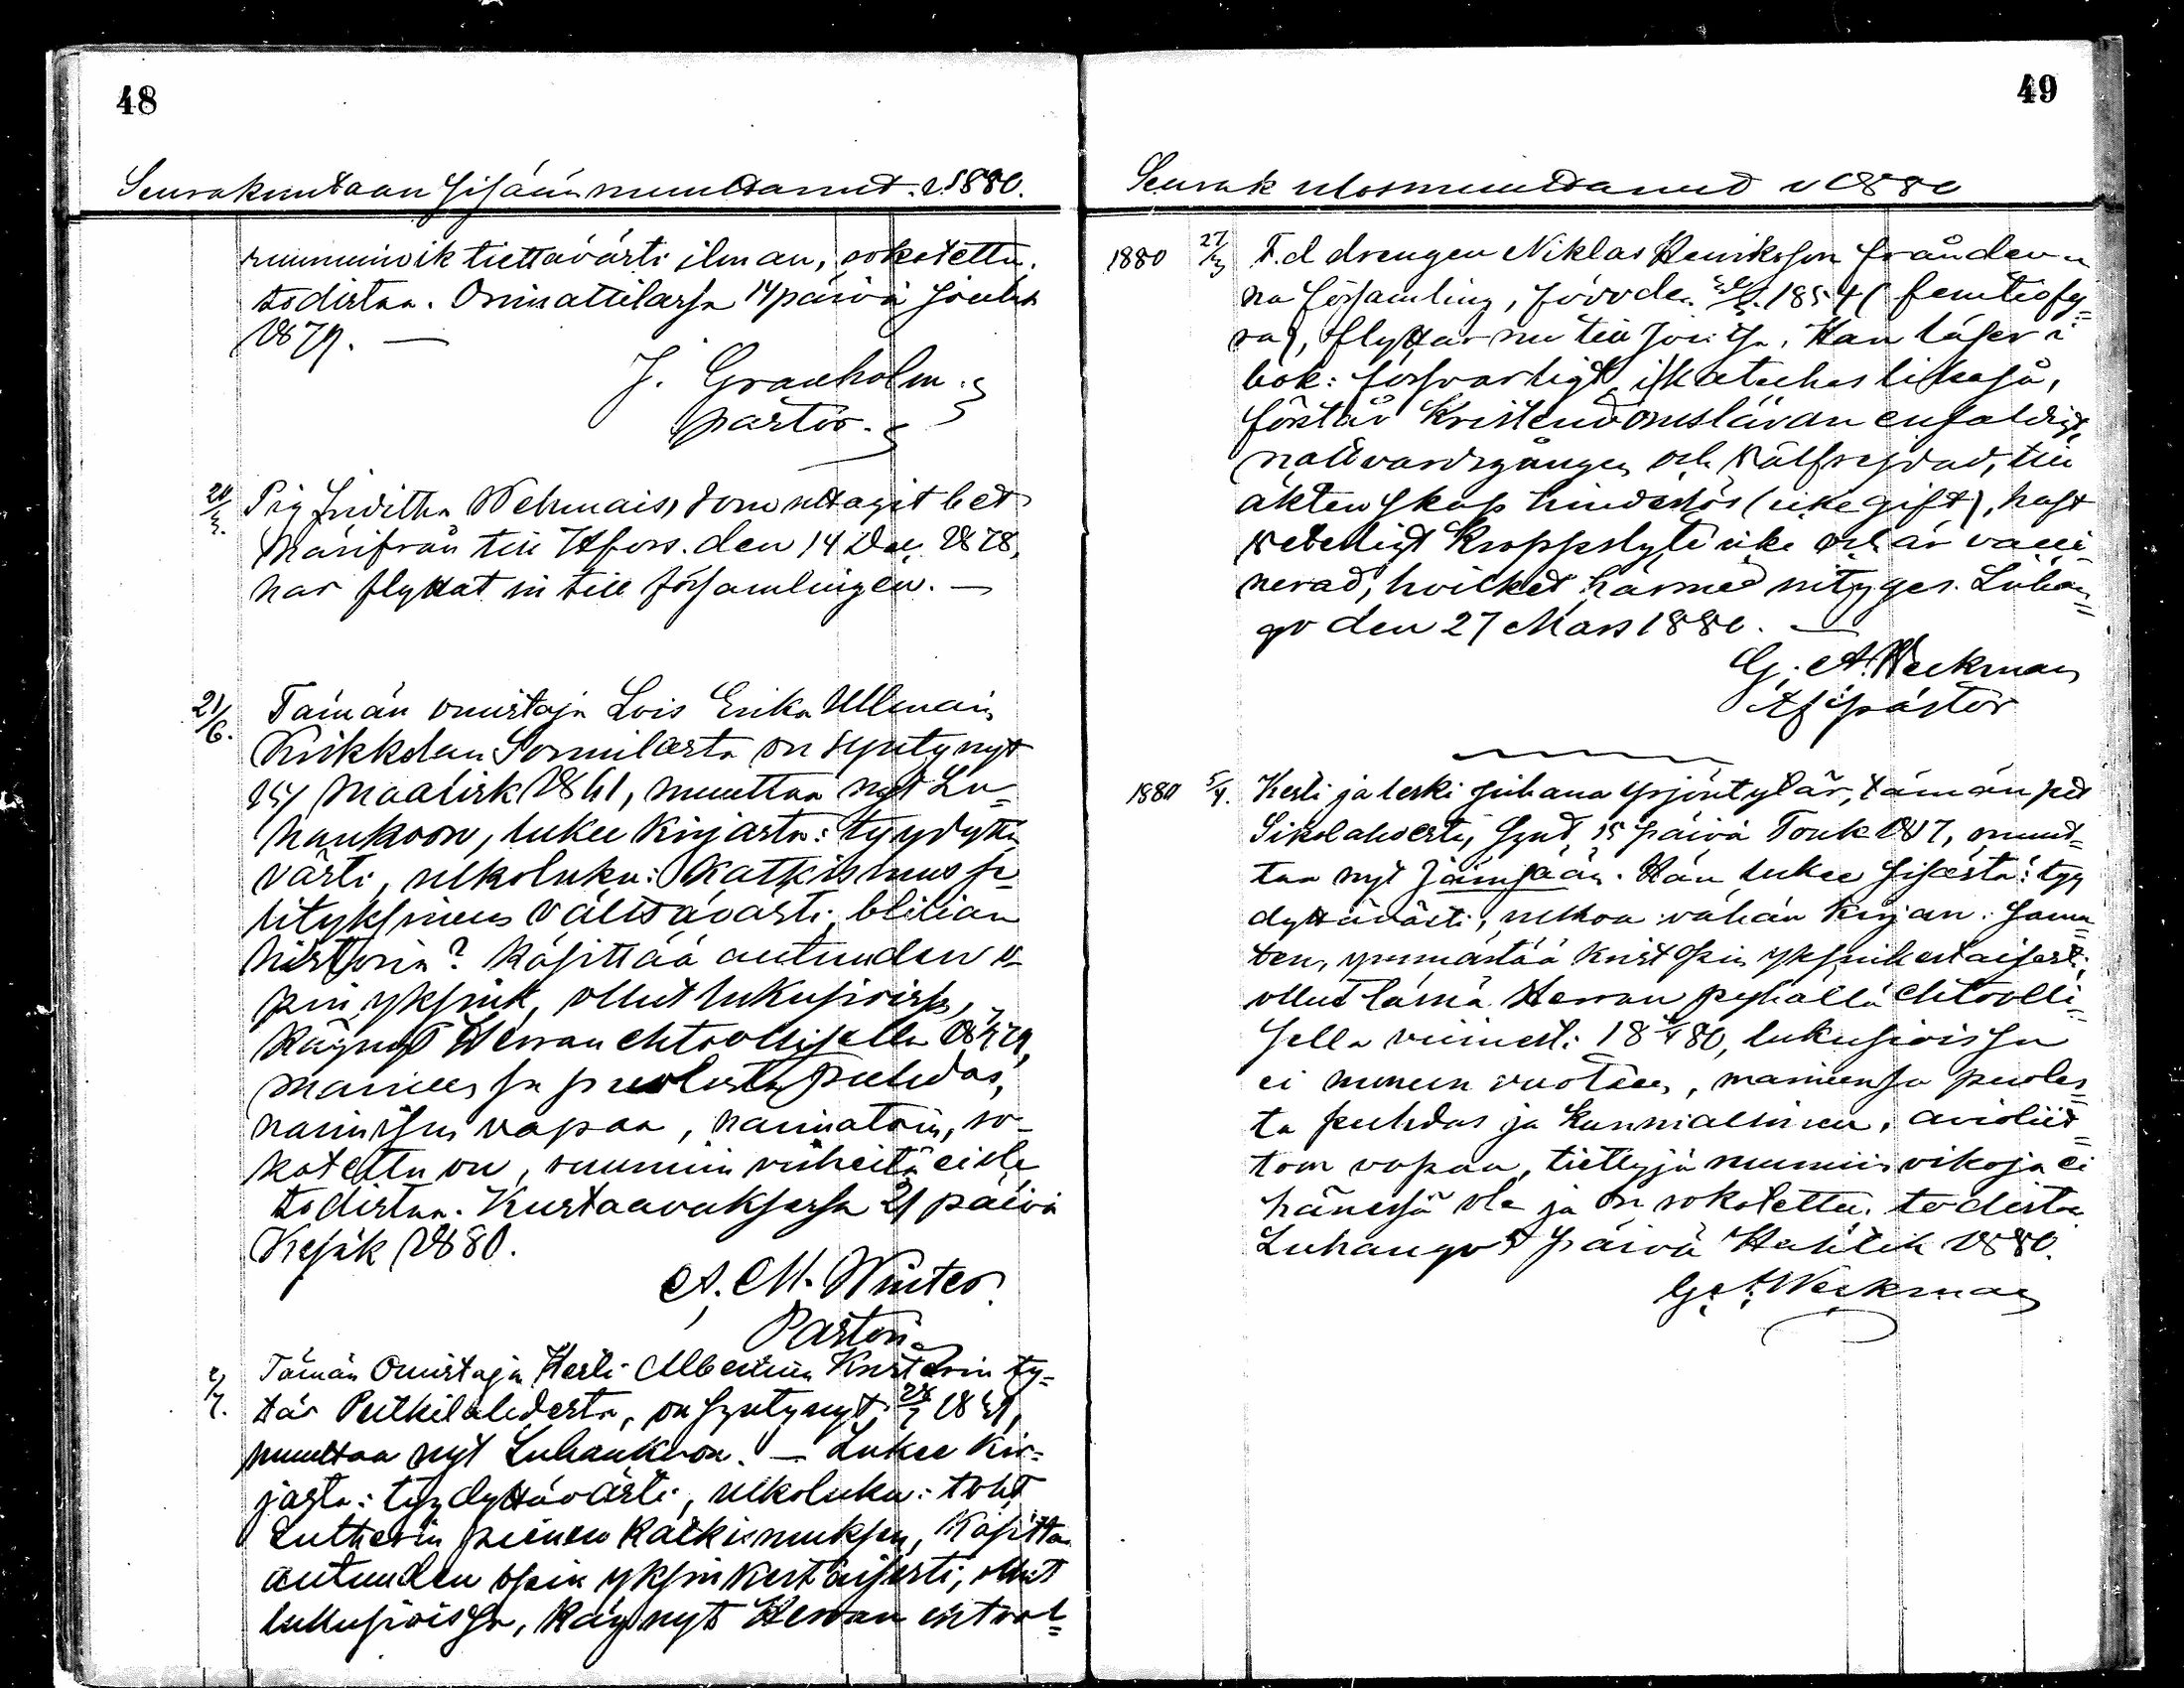 48
Seurakuntaan sisäänmuuttanut v. 1880.
ruumiinvik tiettävästi ilman, rokotettu.
todistaa. Orimattilassa 14 päivä Jouluk
1879. —
J. Granholm.
pastor.
Pig Juditha Wehmais, som uttagit bet
härifrån till Hfors. den 14 Dec. 1878,
har flyttat in till församlingen. —
21/6. Tämän omistaja Lois Erika Ullman
on syntynyt
Maalisk 1861, muuttaa nyt Lu=
hankoon, lukee kirjasta: tyydyttä
västi, ulkoluku: Katkismus se=
lityksineen välttävästi, biblian
historia? Käsittää autuuden o=
pin yksink, ollut lukusioissa,
Käynyt Herran ehtoollisella
maineensa puolesta puhdas,
naimisen vapaa, naimatoin, ro=
kotettu on, ruumiin virheitä ei ole
todistaa. Kustaavuksessa 21 päivä
Kesäk 1880.
A. M. Winter.
Pastori
2/7. Tämän Omistaja Hesti Albertina Kusterin ty=
tär Putkilahdesta, on syntynyt
muuttaa nyt Luhankoon. — Lukee Kir=
jasta: tyydyttävästi, ulkoluku: toht
Lutherin pienen katkismuksen, Käsittää
autuuden opin yksinkertaisesti, ollut
lukusioissa, käynyt Herran ehtool=
49
Seurak ulosmuuttanut v 1880
1880 27/3 F.d drengen Niklas Henriksson från den=
na församling, född den 1854 (femtiofy=
ra), flyttar nu till Joutsa. Han läser i
bok: försvarligt, i katekes likaså,
förstår Kristendomsläran enfaldigt,
nattvardsgången och välfrejdad, till
äktenskap hinderslös (icke gift), haft
veterligt kroppslyte icke och är vacci=
nerad, hvilket härmed intygges. Luhan=
go den 27 Mars 1880. —
G. A. Weckman
1880 5/4. Kesti ja leski Juhana Yrjöntytär, tämän pit
Sikolahdesta, synt, 15 päivä Touk 1817, muut=
taa nyt Jämsään. Hän lukee sisästä: tyy
dyttävästi, ulkoa vähän kirjan samu=
ten, ymmärtää krist opin yksinkertaisesti,
ollut läsnä Herran pyhällä ehtoolli=
sella viimeksi 18 80, lukusioissa
ei monen vuoteen, maineensa puoles=
ta puhdas ja kunniallinen, avioliit=
toon vapaa, tiettyjä ruumiin vikoja ei
hänessä ole ja on rokotettu. todistaa
Luhango 5 päivä Huhtik 1880.
G. A. Weckman